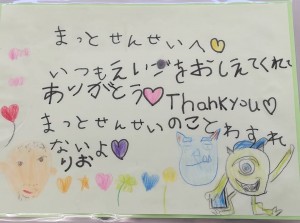 まっとせんせいへ♡
いつもえいごをおしえてくれて
ありがとう♡Thankyou♡
まっとせんせいのことわすれ
ないよ♡
りお